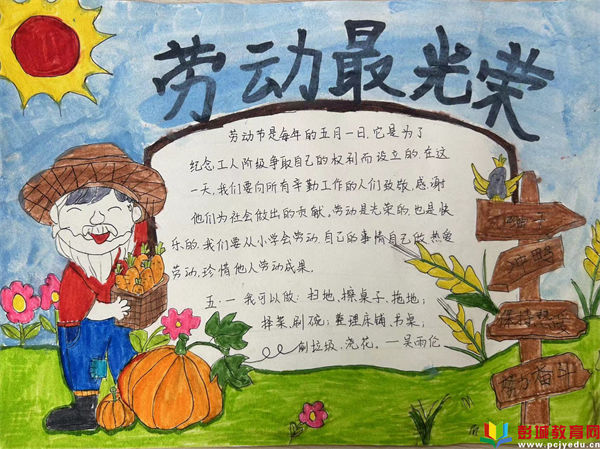 劳动最光荣
劳动节是每年的五月一日,它是为了
纪念工人阶级争取自己的权利而设立的.在这
一天,我们要向所有辛勤工作的人们致敬,感谢
他们为社会做出的贡献,劳动是光荣的,也是快
乐的,我们要从小学会劳动,自己的事情自己做,热爱
劳动,珍惜他人劳动成果.
五·一 我可以做: 扫地,擦桌子,拖地;
择菜,刷碗;整理床铺、书桌;
倒垃圾,浇花,—吴雨伦
冲鸭
保持
努力奋斗
彭城教育网
www.pcjyedu.cn